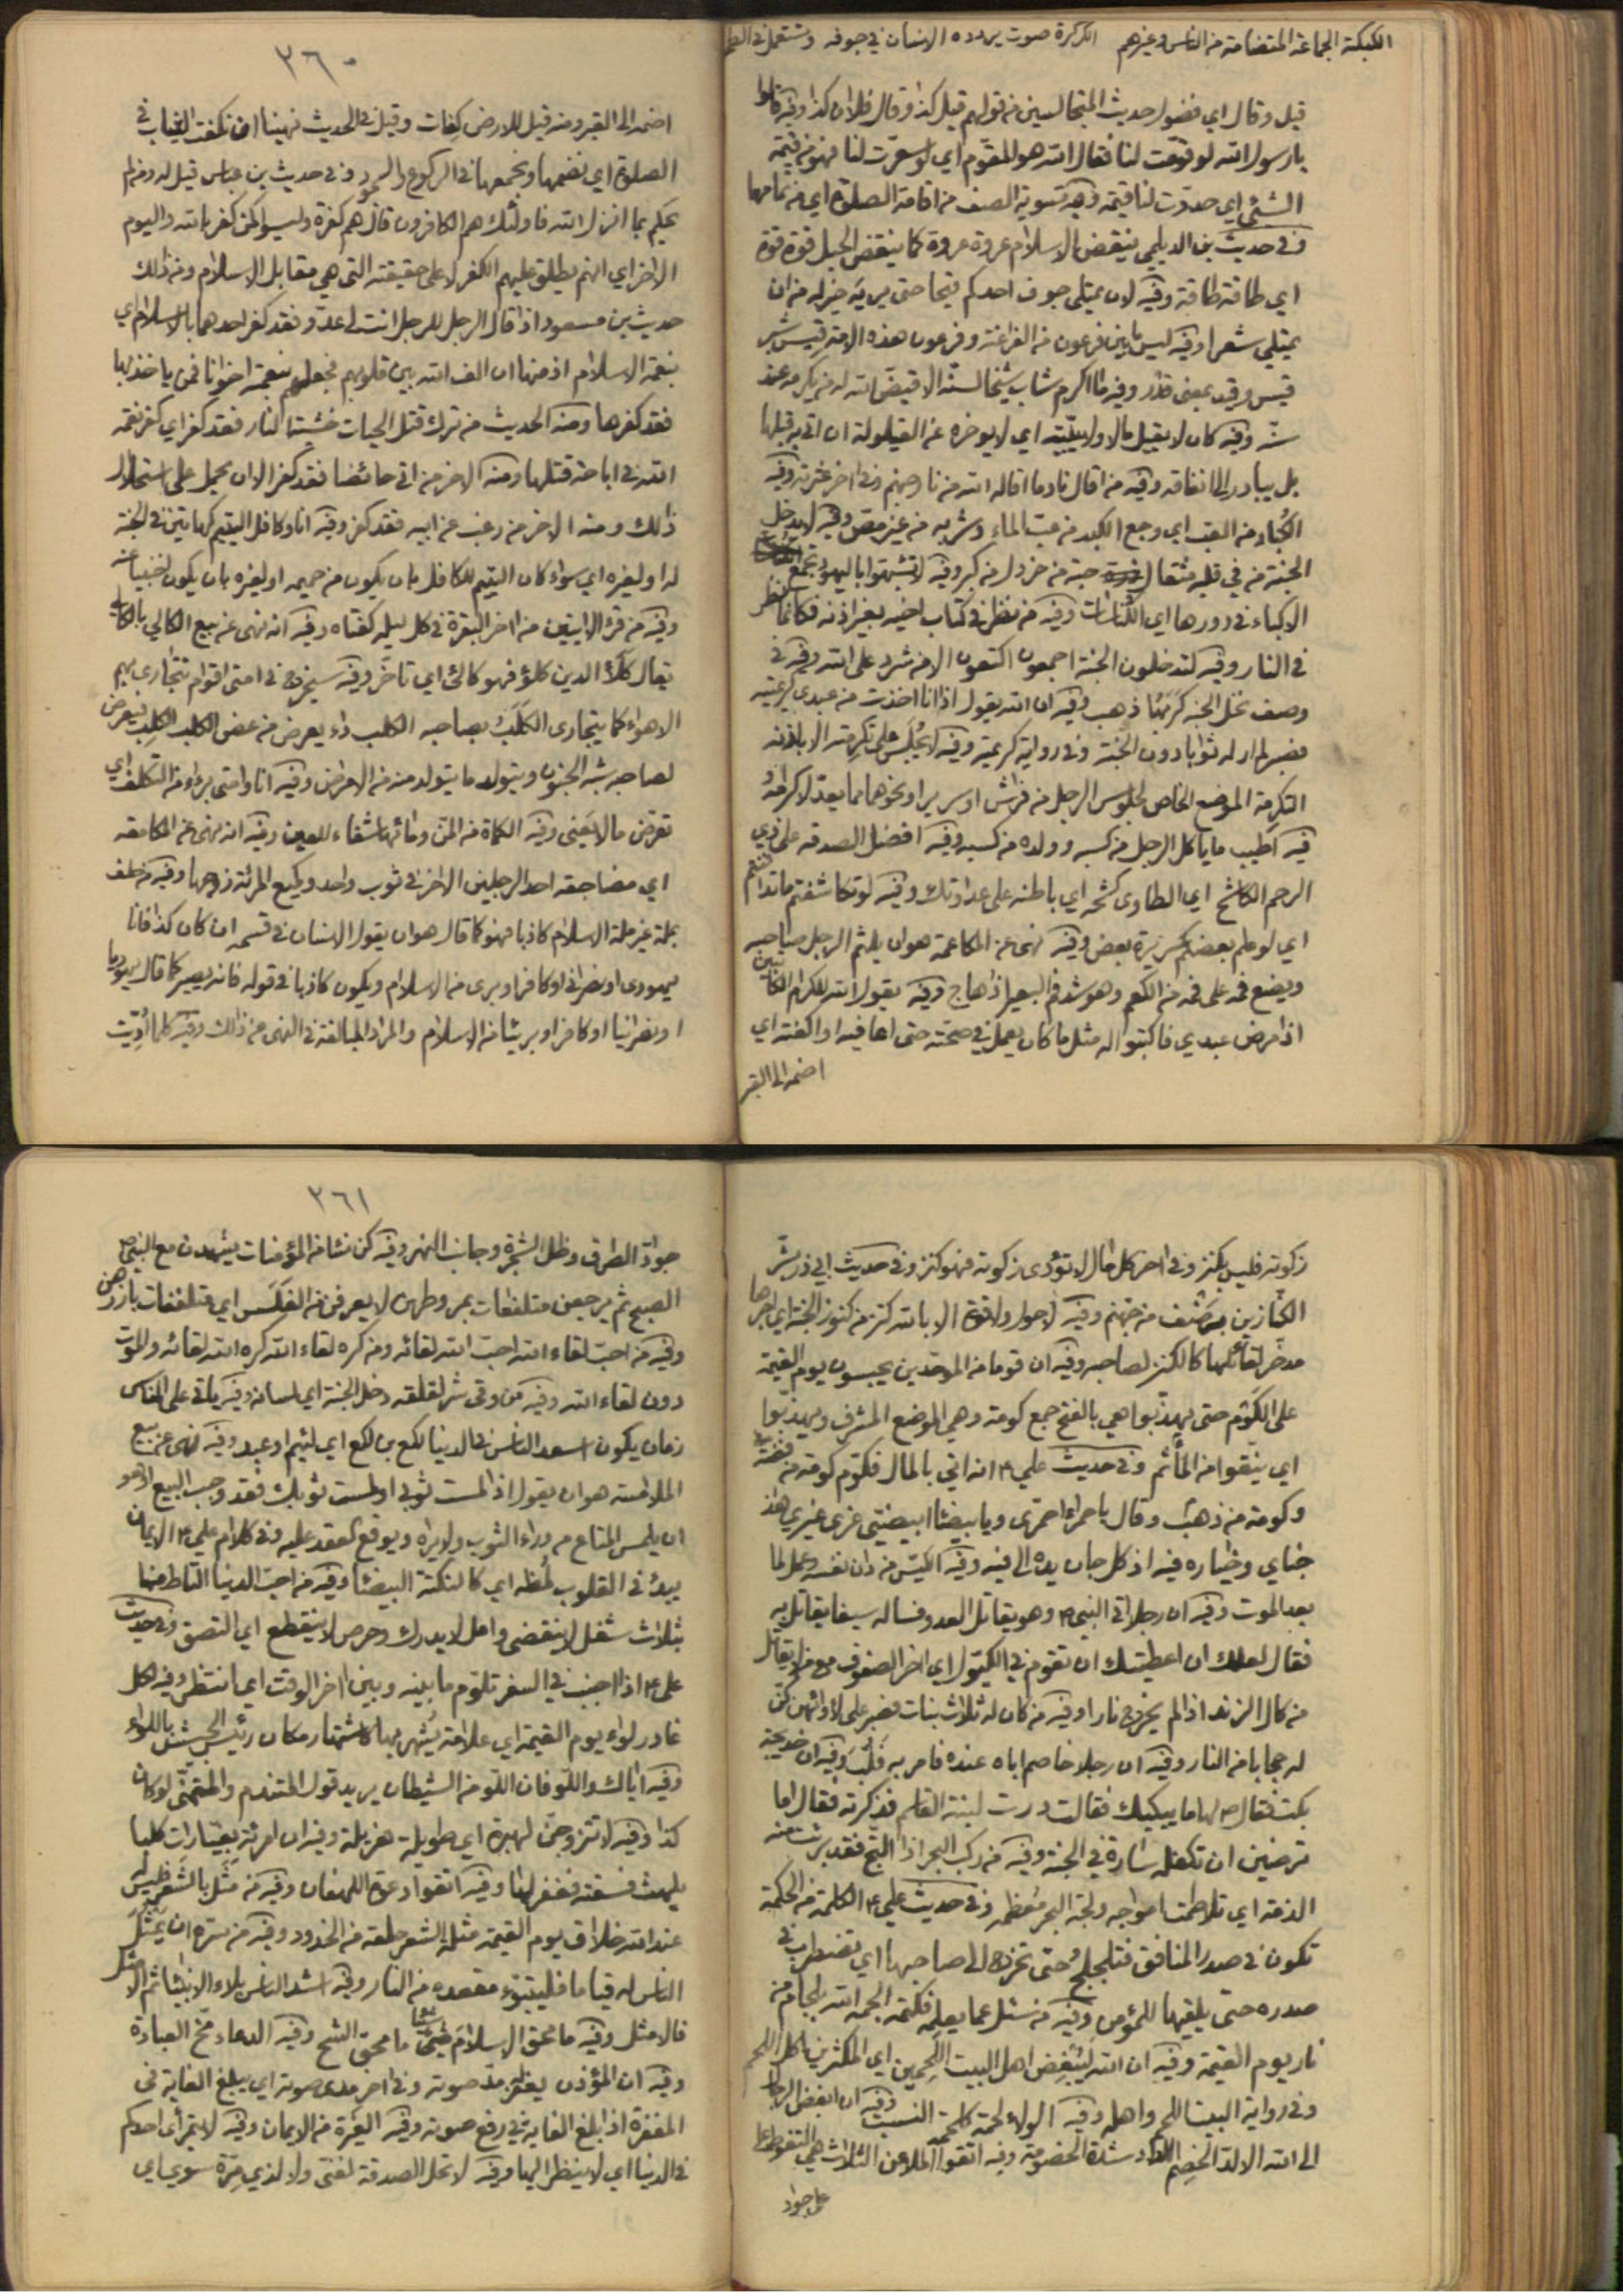 الكبكبة الجماعة المتضامة من الناس وغيرهم الكركرة صوت يردده الانسان في جوفه وتستعمل في
قيل وقال اي فضول حديث المتجالسين من قولهم قيل كذا وقال فلان كذا وفيه قالوا
يا رسول الله لو قومت لنا فقال الله هو المقوم اي لو سعرت لنا فهو من قيمة
الشئ اي حددت لنا قيمته وفيه تسوية الصف من اقامة الصلوة اي من تمامها
وفي حديث بن الديلمي ينقض الاسلام عروة عروة كما ينقض الحبل قوة قوة
اي طاقة طاقة وفيه لان يمتلي جوف احدكم قيحا حتى يريه خير له من ان
يمتلي شعرا وفيه ليس ما بين فرعون من الفراعنة وفرعون هذه الامة قيس شبر
قيس وقيد بمعنى قدر وفيه ما اكرم شاب شيخا لسنه الا قيض الله له من يكرمه عند
سنه وفيه كان لا يقيل مالا ولا يبيته اي لا يوخره عن القيلولة ان اتي به قبلها
بل يبادر الى انفاقه وفيه من اقال نادما اقاله الله من نار جهنم وفي اخر عثرته وفيه
الكباد من العب اي وجع الكبد من عب الماء وشربه من غير مص وفيه لا يدخل
الجنة من في قلبه مثقال حبة من خردل من كبر وفيه لا تشبهوا باليهود تجمع
الاكباء في دورها اي الكناسات وفيه من نظر في كتاب اخيه بغير اذنه فكانما ينظر
في النار وفيه لتدخلون الجنة اجمعون اكتعون الا من شرد على الله وفيه في
وصف نخل الجنة كربها ذهب وفيه ان الله يقول اذا انا اخذت من عبدي كريمتيه
فصبر لم ار له ثوابا دون الجنة وفي رواية كريمته وفيه لا يجلس على تكرمته الا باذنه
التكرمة الموضع الخاص لجلوس الرجل من فراش او سرير او نحوهما مما يعد لاكرامه
فيه اطيب ما ياكل الرجل من كسبه وولده من كسبه وفيه افضل الصدقة على ذي
الرحم الكاشح اي الطاوى كشحه اي باطنه على عداوتك وفيه لو تكاشفتم ما تدافنتم
اي لو علم بعضكم سريرة بعض وفيه نهى عن المكاعمة هو ان يلثم الرجل صاحبه
ويضع فمه على فمه من الكعم وهو شد فم البعير اذا هاج وفيه يقول الله للكرام الكاتبين
اذا مرض عبدي فاكتبوا له مثل ما كان يعمل في صحته حتى اعافيه او اكفته اي
اضمه الى القبر
٣٦٠
اضمه الى القبر ومنه قيل للارض كفات وقيل في الحديث نهينا ان نكفت الثياب في
الصلوة اي نضمها ونجمعها في الركوع والسجود وفي حديث بن عباس قيل له ومن لم
يحكم بما انزل الله فاولئك هم الكافرون قال هم كفرة وليسوا كمن كفر بالله واليوم
الاخر اي انهم يطلق عليهم الكفر لا على حقيقته التي هي مقابل الاسلام ومن ذلك
حديث بن مسعود اذا قال الرجل للرجل انت لي عدو فقد كفر احدهما بالاسلام اي
بنعمة الاسلام اذ منها ان الف الله بين قلوبهم فجعلهم بنعمته اخوانا فمن لم ياخذ بها
فقد كفرها ومنه الحديث من ترك قتل الحيات خشية النار فقد كفر اي كفر نعمة
الله في اباحة قتلها ومنه الاخر من اتى حائضا فقد كفر الا ان يحمل على استحلال
ذلك ومنه الاخر من رغب عن ابيه فقد كفر وفيه انا وكافل اليتيم كهاتين في الجنة
له او لغيره اي سواء كان اليتيم للكافل بان يكون من حميمه او لغيره بان يكون اجنبيا منه
وفيه من قرء الايتين من اخر البقرة في كل ليلة كفتاه وفيه انه نهى عن بيع الكالي بالكالي
يقال كلأ الدين كلؤ فهو كالئ اي تاخر وفيه سيخرج في امتي اقوام تتجارى بهم
الاهواء كما يتجارى الكلب بصاحبه الكلب داء يعرض من عض الكلب الكلب فيعرض
لصاحبه شبه الجنون ويتولد ما يتولد منه من الاعراض وفيه انا وامتي برءاء من التكلف اي
تعرض ما لا يعني وفيه الكماة من المن ومائها شفاء للعين وفيه انه نهى عن المكامعة
اي مضاجعة احد الرجلين الاخر في ثوب واحد وكميع المرئة زوجها وفيه من حلف
بملة غير ملة الاسلام كاذبا فهو كما قال هو ان يقول الانسان في قسمه ان كان كذا فانا
يهودي او نصراني او كافر او برى من الاسلام ويكون كاذبا في قوله فانه يصير كما قال يهوديا
او نصرانيا او كافرا او بريئا من الاسلام والمراد المبالغة في النهي عن ذلك وفيه كلما اديت
زكوته فليس بكنز وفي اخر كل مال لا تؤدى زكوته فهو كنز وفي حديث ابي ذر بشر
الكنازين برضف من جهنم وفيه لا حول ولا قوة الا بالله كنز من كنوز الجنة اي اجرها
مدخر لقائلها كالكنز لصاحبه وفيه ان قوما من الموحدين يحبسون يوم القيمة
على الكوم حتى يهذبوا هي بالفتح جمع كومة وهي الموضع المشرف ويهذبوا
اي ينقوا من المأثم وفي حديث علي ع انه اتي بالمال فكوم كومة من فضة
وكومة من ذهب وقال يا حمراء احمري ويا بيضاء ابيضي غري غيري هذا
جناي وخياره فيه اذ كل جان يده الى فيه وفيه الكيس من دان نفسه وعمل لما
بعد الموت وفيه ان رجلا اتى النبي ص وهو يقاتل العدو فساله سيفا يقاتل به
فقال لعلك ان اعطيتك ان تقوم في الكيول اي اخر الصفوف مع من لا يقاتل
من كال الزند اذا لم يخرج نارا وفيه من كان له ثلاث بنات فصبر على لأوائهن كن
له حجابا من النار وفيه ان رجلا خاصم اباه عنده فامر به فلب وفيه ان خديجة
بكت فقال ص لها ما يبكيك فقالت درت لبنة القاسم فذكرته فقال اما
ترضين ان تكفله سارة في الجنة وفيه من ركب البحر اذا التج فقد برئت منه
الذمة اي تلاطمت امواجه ولجة البحر معظمه وفي حديث علي ع الكلمة من الحكمة
تكون في صدر المنافق فتلجلج حتى تخرج الى صاحبها اي تضطرب في
صدره حتى يلقيها للمؤمن وفيه من سئل عما يعلم فكتمه الجمه الله بلجام من
نار يوم القيمة وفيه ان الله ليبغض اهل البيت اللحمين اي المكثرين اكل اللحم
وفي رواية البيت اللحم واهله وفيه الولاء لحمة كلحمة النسب وفيه ان ابغض الرجال
الى الله الالد الخصم اللدد شدة الخصومة وفيه اتقوا الملاعن الثلاث هي التغوط على
على جواد
٣٦١
جواد الطرق وظل الشجرة وجانب النهر وفيه كن نساء من المؤمنات يشهدن مع النبي ص
الصبح ثم يرجعن متلفعات بمروطهن لا يعرفن من الغلس اي متلففات بازرهن
وفيه من احب لقاء الله احب الله لقائه ومن كره لقاء الله كره الله لقائه والموت
دون لقاء الله وفيه من وقي شر لقلقه دخل الجنة اي لسانه وفيه ياتي على الناس
زمان يكون اسعد الناس في الدنيا لكع بن لكع اي لئيم او عبد وفيه نهى عن بيع
الملامسة هو ان يقول اذا لمست ثوبي او لمست ثوبك فقد وجب البيع او هو
ان يلمس المتاع من وراء الثوب ولا يراه ويوقع العقد عليه وفي كلام علي ع الايمان
يبدؤ في القلوب لمظة اي كالنكتة البيضاء وفيه من احب الدنيا التاط منها
بثلاث شغل لا ينقضى وامل لا يدرك وحرص لا ينقطع اي التصق وفي حديث
علي ع اذا اجنب في السفر تلوم ما بينه وبين اخر الوقت اي انتظر وفيه لكل
غادر لواء يوم القيمة اي علامة يشهر بها كاشتهار مكان رئيس الجيش باللواء
وفيه اياك واللو فان اللو من الشيطان يريد قول المتندم والمتمني لو كان
كذا وفيه لا تتزوجن لهبرة اي طويلة هزيلة وفيه ان امرئة بغيا رات كلبا
يلهث فسقته فغفر لها وفيه اتقوا دعوة اللهفان وفيه من مثل بالشعر فليس له
عند الله خلاق يوم القيمة مثلة الشعر حلقه من الخدود وفيه من سره ان يمثل
الناس له قياما فليتبؤء مقعده من النار وفيه اشد الناس بلاء الانبياء ثم الامثل
فالامثل وفيه ما محق الاسلام شيئا ما محق الشح وفيه الدعاء مخ العبادة
وفيه ان المؤذن يغفر له مد صوته وفي اخر مدى صوته اي يبلغ الغاية في
المغفرة اذا بلغ الغاية في رفع صوته وفيه الغيرة من الايمان وفيه لا يتمرأى احدكم
في الدنيا اي لا ينظر اليها وفيه لا تحل الصدقة لغني ولا لذي مرة سوي اي